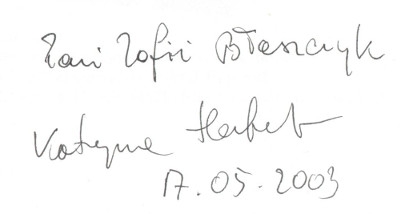 Pani Zofii Błaszczyk
Katarzyna Herbert
17.05.2003